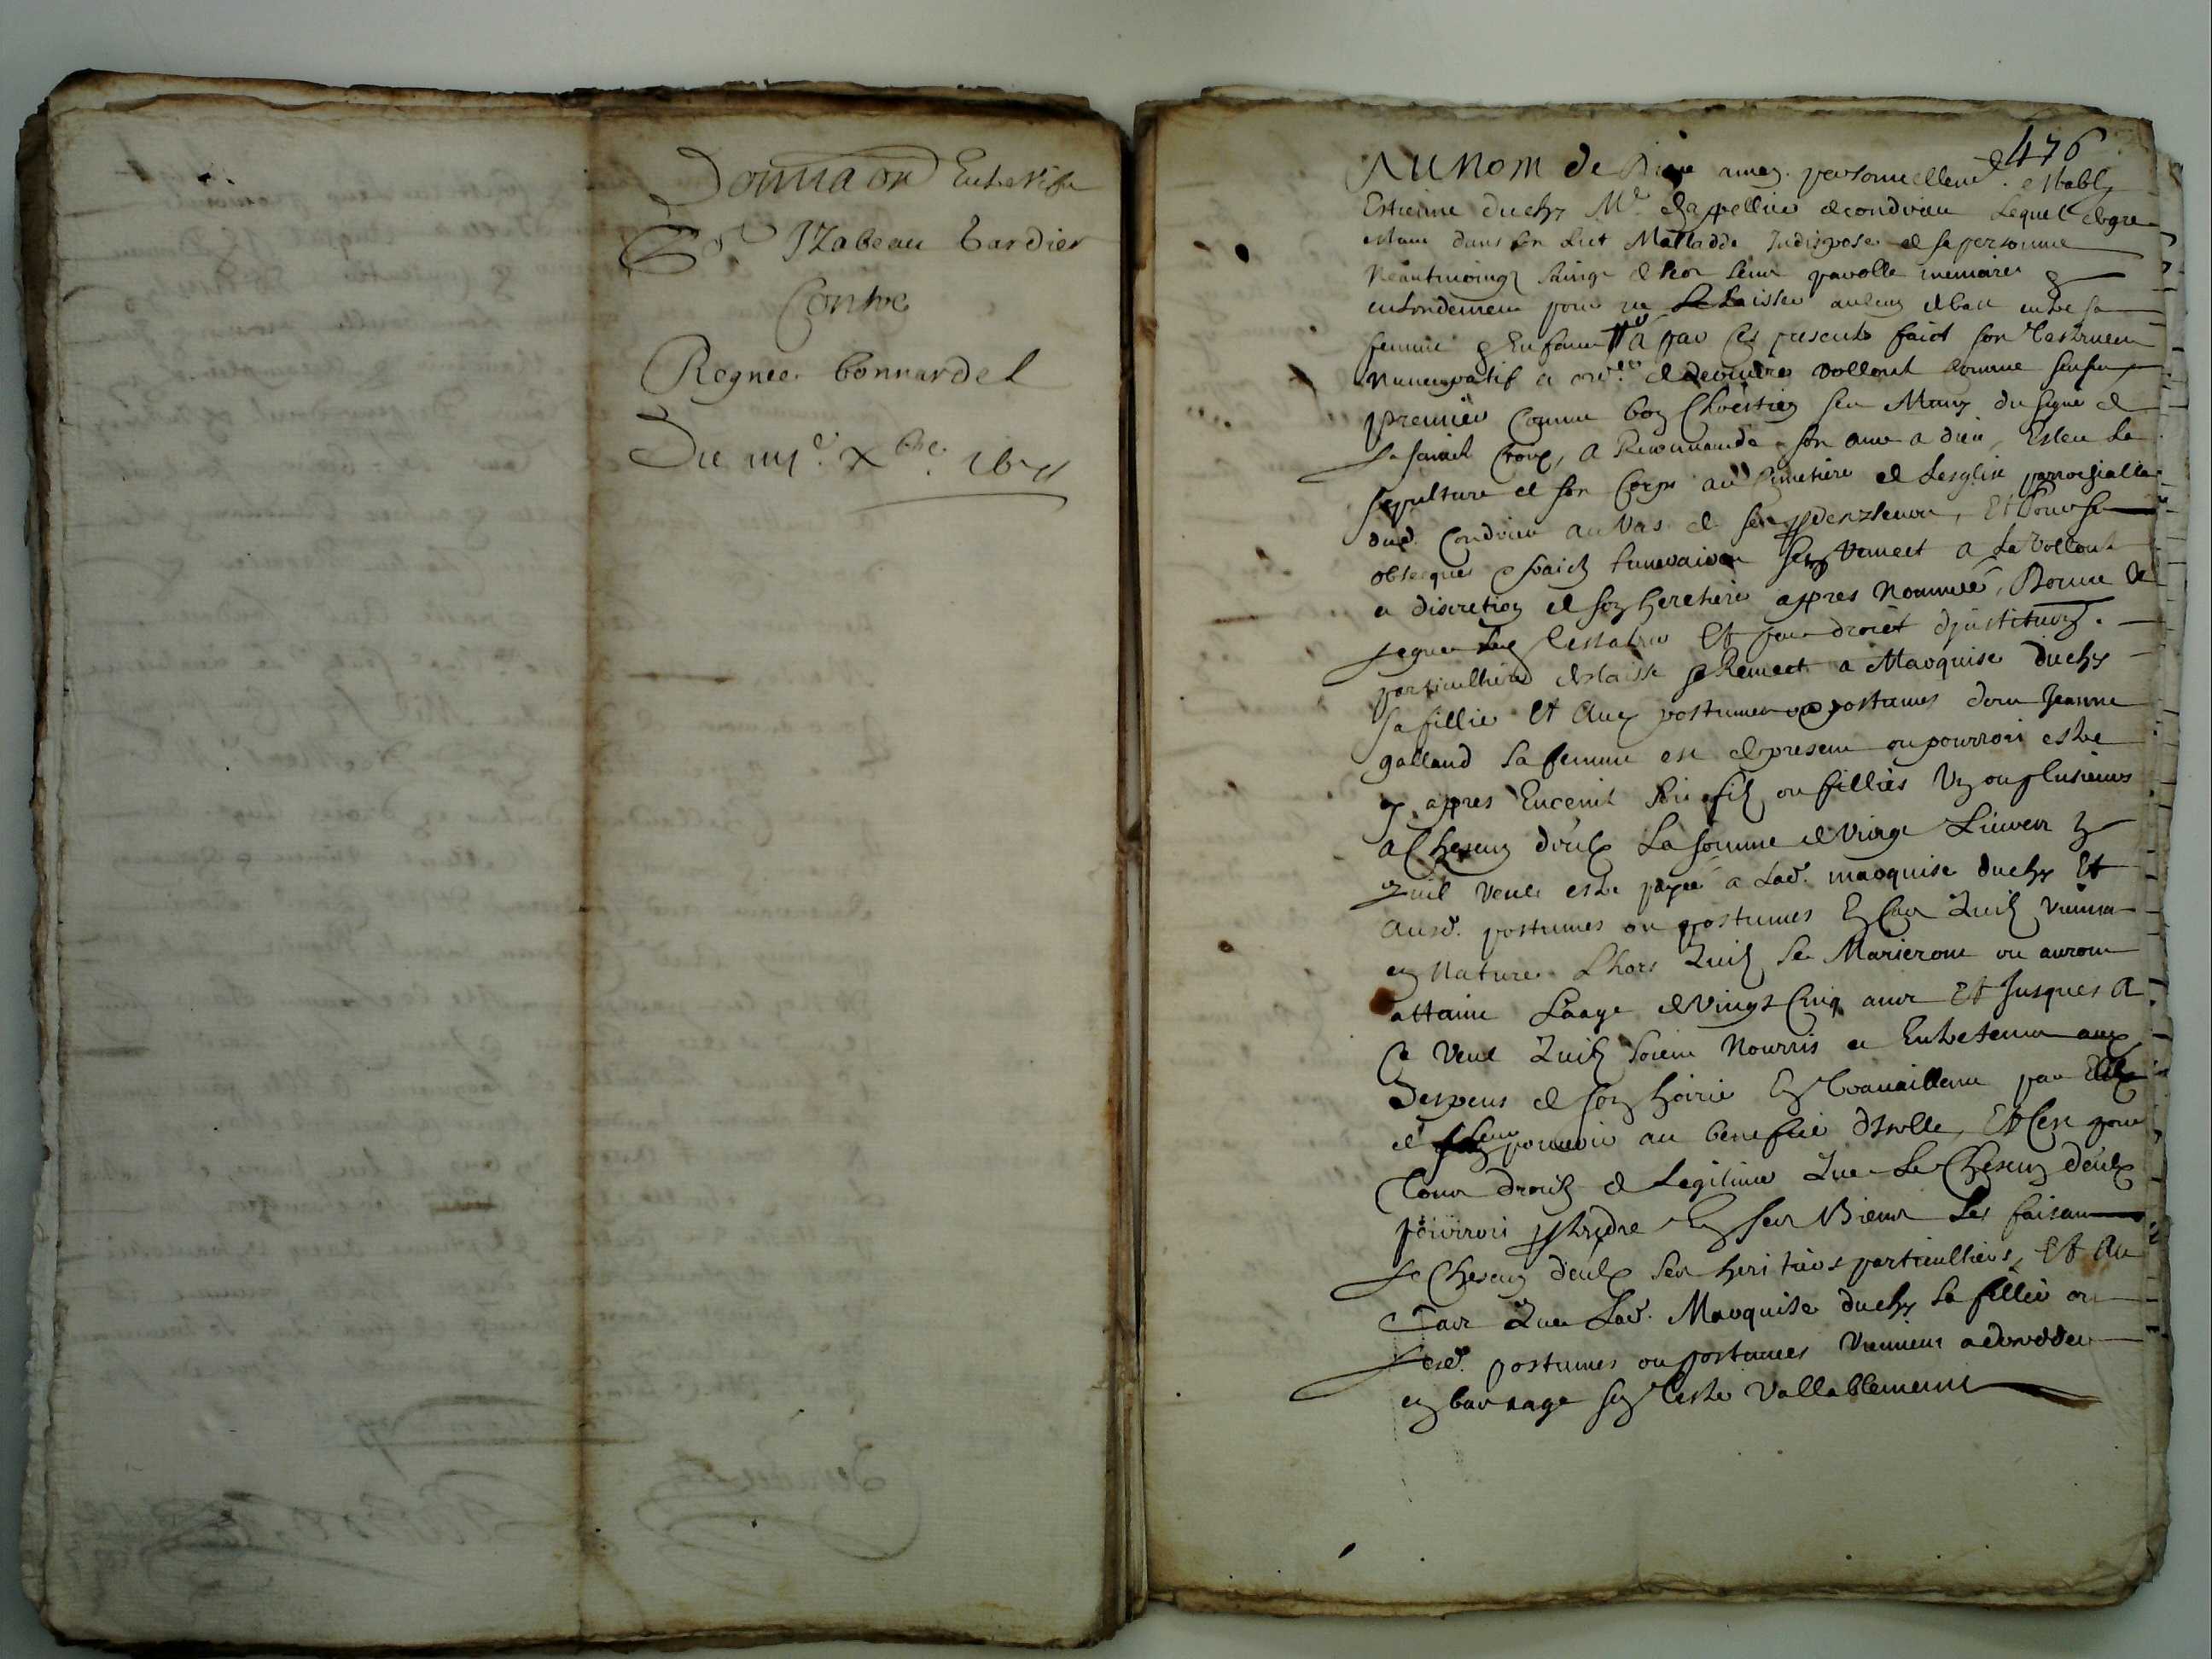 Donnaōn Entre vifz
Sr. Izabeau Tardier
Contre
Regnee Bonnardel
Du iiije. Xbre. 1671
476
AU Nom de Dieu amen. personnellemt. establi
Estienne duchy Me. chappellier de condrieu Lequel de gre
estant dans son lict Malladde Indispose de sa personne
Neantmoingz saing de son sens parolle memoire &
entendement pour ne laisser aulcun debat entre sa
femme & Enfans a par ces presents faict son Testament
Nuncupatif et ordre. de derniere vollonté comme sensuit
premier Comme bon Chrestien sest Muny du signe de
la saincte Croix, a Recommandé son ame a dieu, Esleu la
sepulture de son Corps au simetiere de Lesglise parrochialle
dud. Condrieu au Vas de ses predecesseurs, Et pour ses
obseques & fraictz funeraires sen Remect a la Vollonté
et discretion de son heretiere appres Nommée, Donne &
legue led Testateur Et par droict dinstitution.
particulliere delaisse & Remect a Marquise duchy
sa fillie Et aux postumes ou postumes dont Jeanne
galland sa femme est de present ou pourroit estre
cy appres Enceinte soit filz ou fillies Un ou plusieurs
a Chescung deulx La somme de Vingt Livres
quil veult estre payée a lad. marquise duchy Et
ausd. postumes ou postumes En Cas quilz viennent
en Nature Lhors quilz se Marieront ou auront
attaint Laage de Vingt Cinq ans Et Jusques a
Ce veult quilz soient Nourris et Entretenus aux
despens de son hoirie En Travaillant par Eulx
de leur pouvoir au beneffice dIcelle, Et Cest pour
Tous droictz de Legitime que Le Chescung deulx
pourroit prethendre En ses Biens Les faisant
Le Chescung deulx ses heritiers particulliers, Et Au
Cas que Lad. Marquise duchy sa fillie ou
lesd. postumes ou postumes Viennent a decedder
en bas aage sans Tester Vallablement